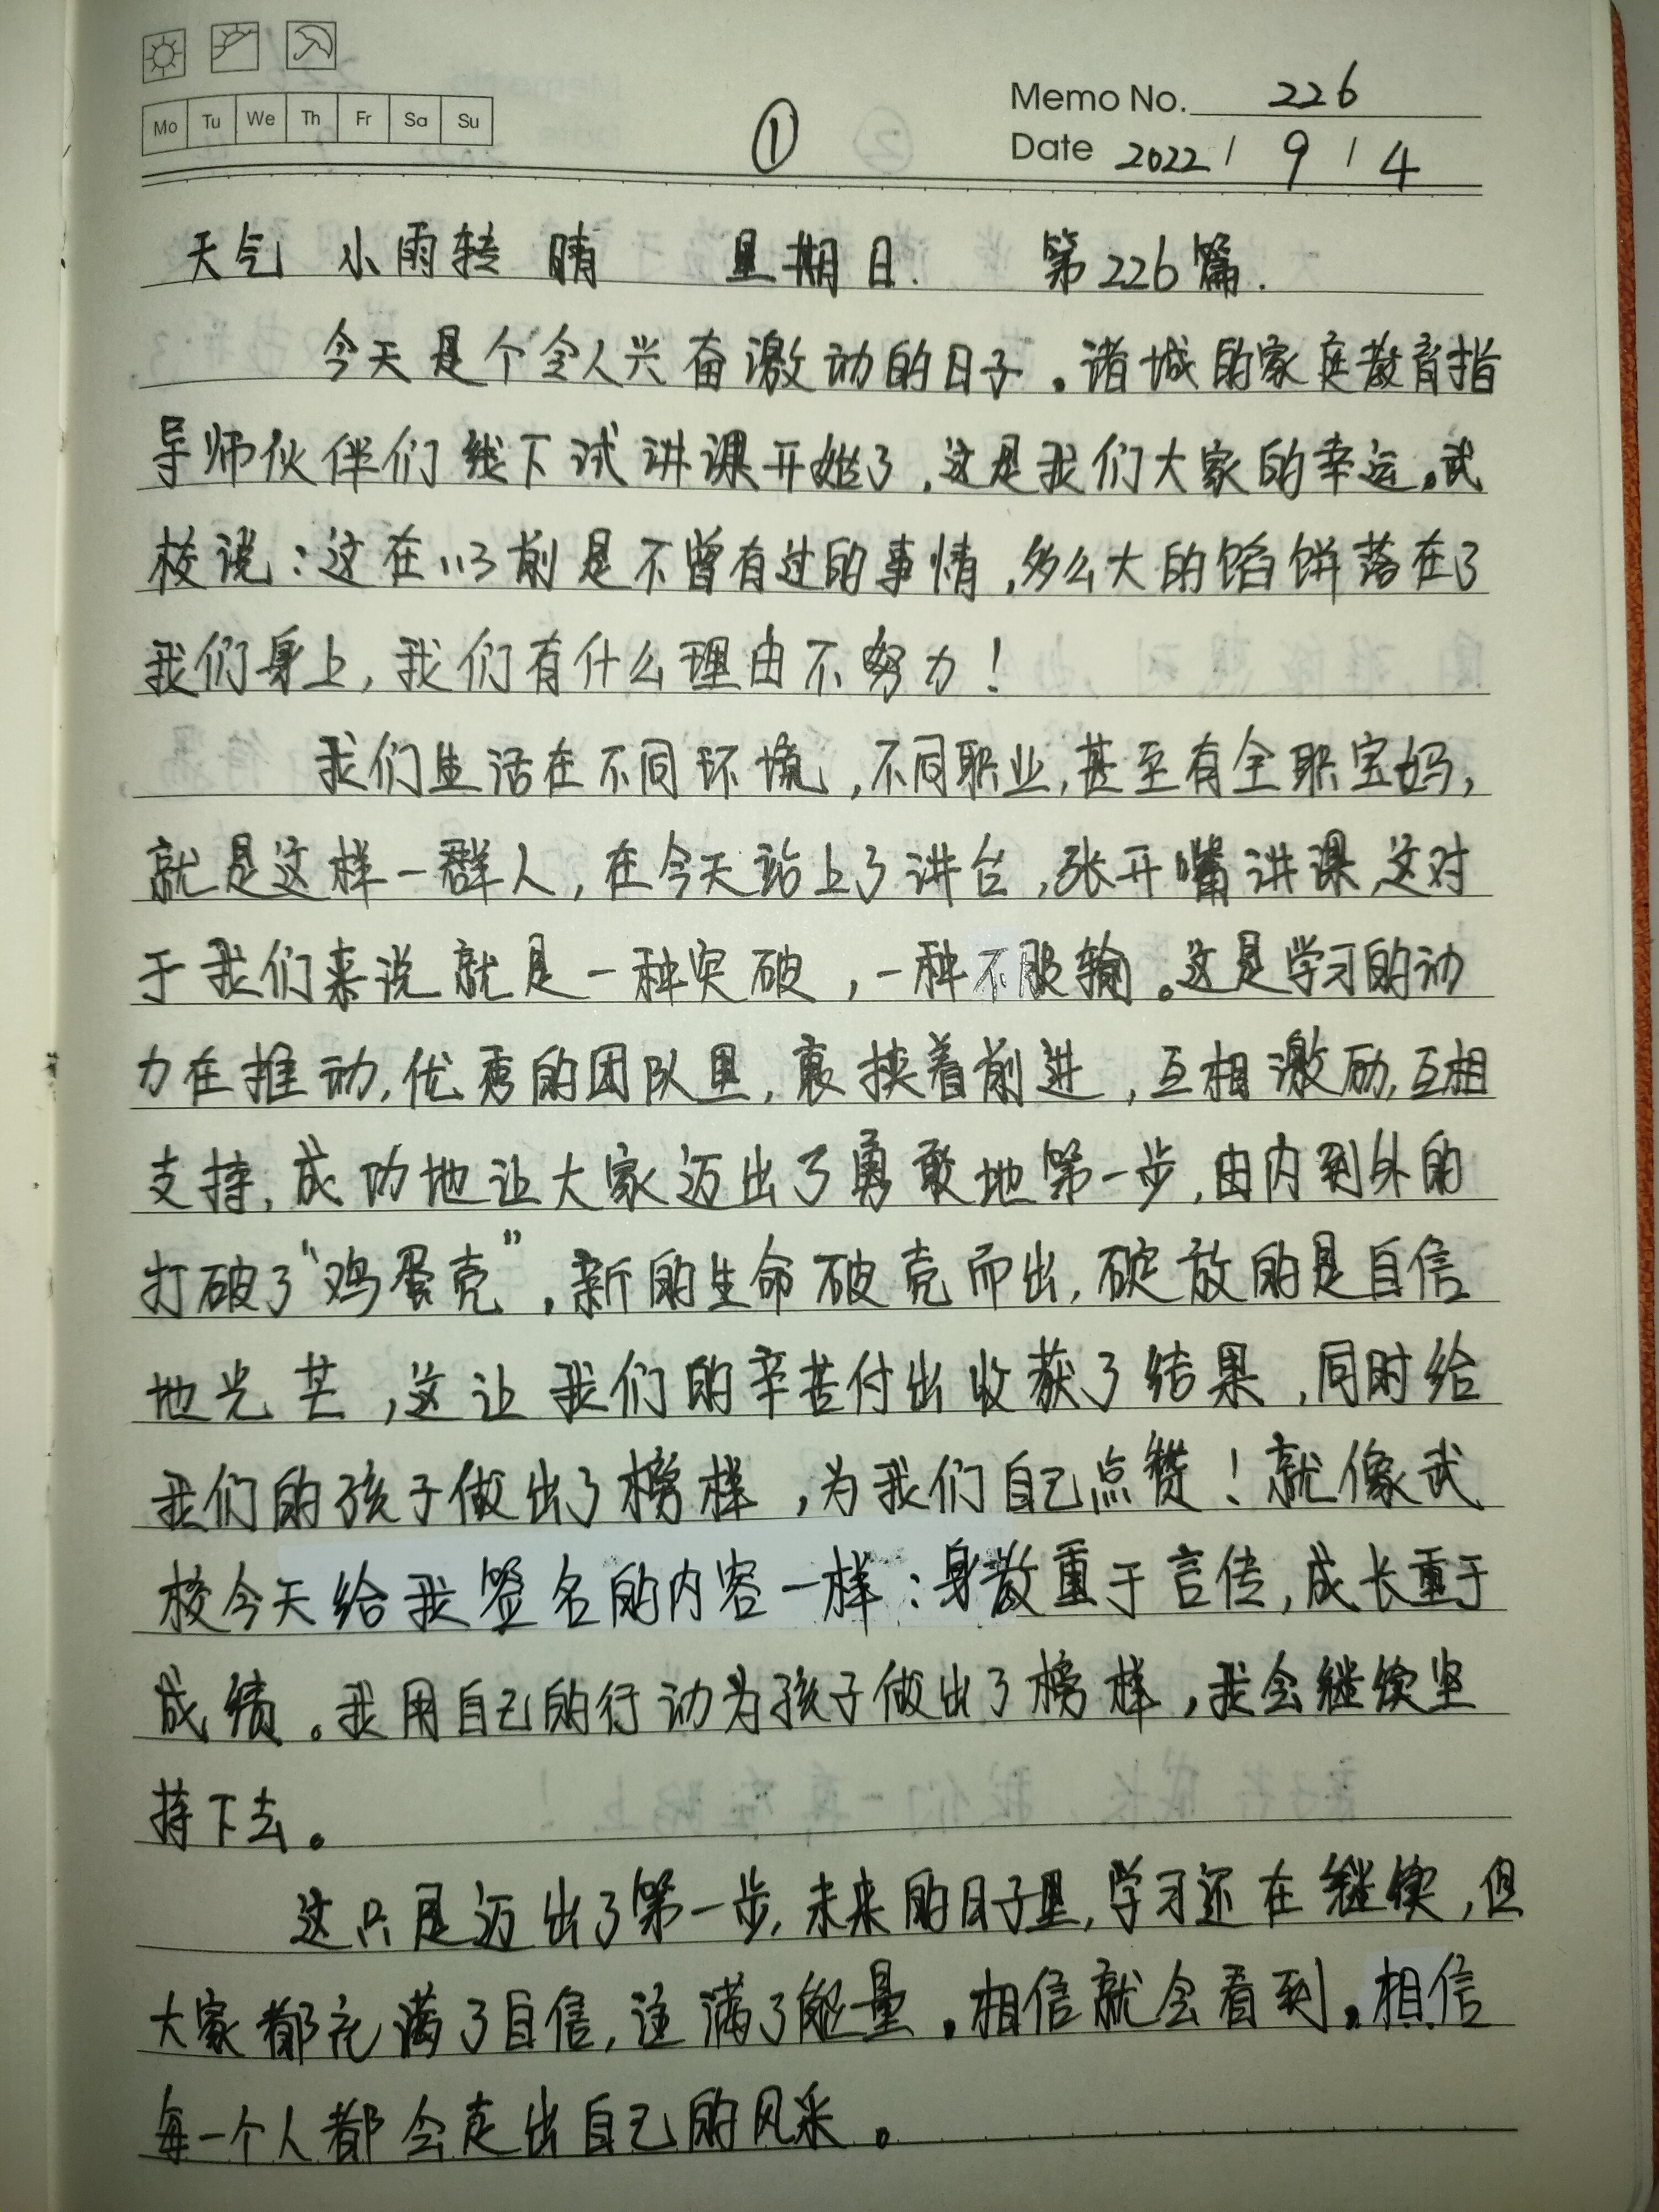 Mo Tu We Th Fr Sa Su
①
Memo No. 226
Date 2022 / 9 / 4
天气 小雨转晴 星期日. 第226篇.
今天是个令人兴奋激动的日子。诸城的家庭教育指
导师伙伴们线下试讲课开始了,这是我们大家的幸运。武
校说:这在113前是不曾有过的事情,多么大的馅饼落在了
我们身上,我们有什么理由不努力!
我们生活在不同环境,不同职业,甚至有全职宝妈,
就是这样一群人,在今天站上了讲台,张开嘴讲课,这对
于我们来说就是一种突破,一种不服输。这是学习的动
力在推动,优秀的团队里,裹挟着前进,互相激励,互相
支持,成功地让大家迈出了勇敢地第一步,由内到外的
打破了“鸡蛋壳”,新的生命破壳而出,绽放的是自信
地光芒,这让我们的辛苦付出收获了结果,同时给
我们的孩子做出了榜样,为我们自己点赞!就像武
校今天给我签名的内容一样:身教重于言传,成长重于
成绩。我用自己的行动为孩子做出了榜样,我会继续坚
持下去。
这只是迈出了第一步,未来的日子里,学习还在继续,但
大家都充满了自信,注满了能量。相信就会看到。相信
每一个人都会走出自己的风采。